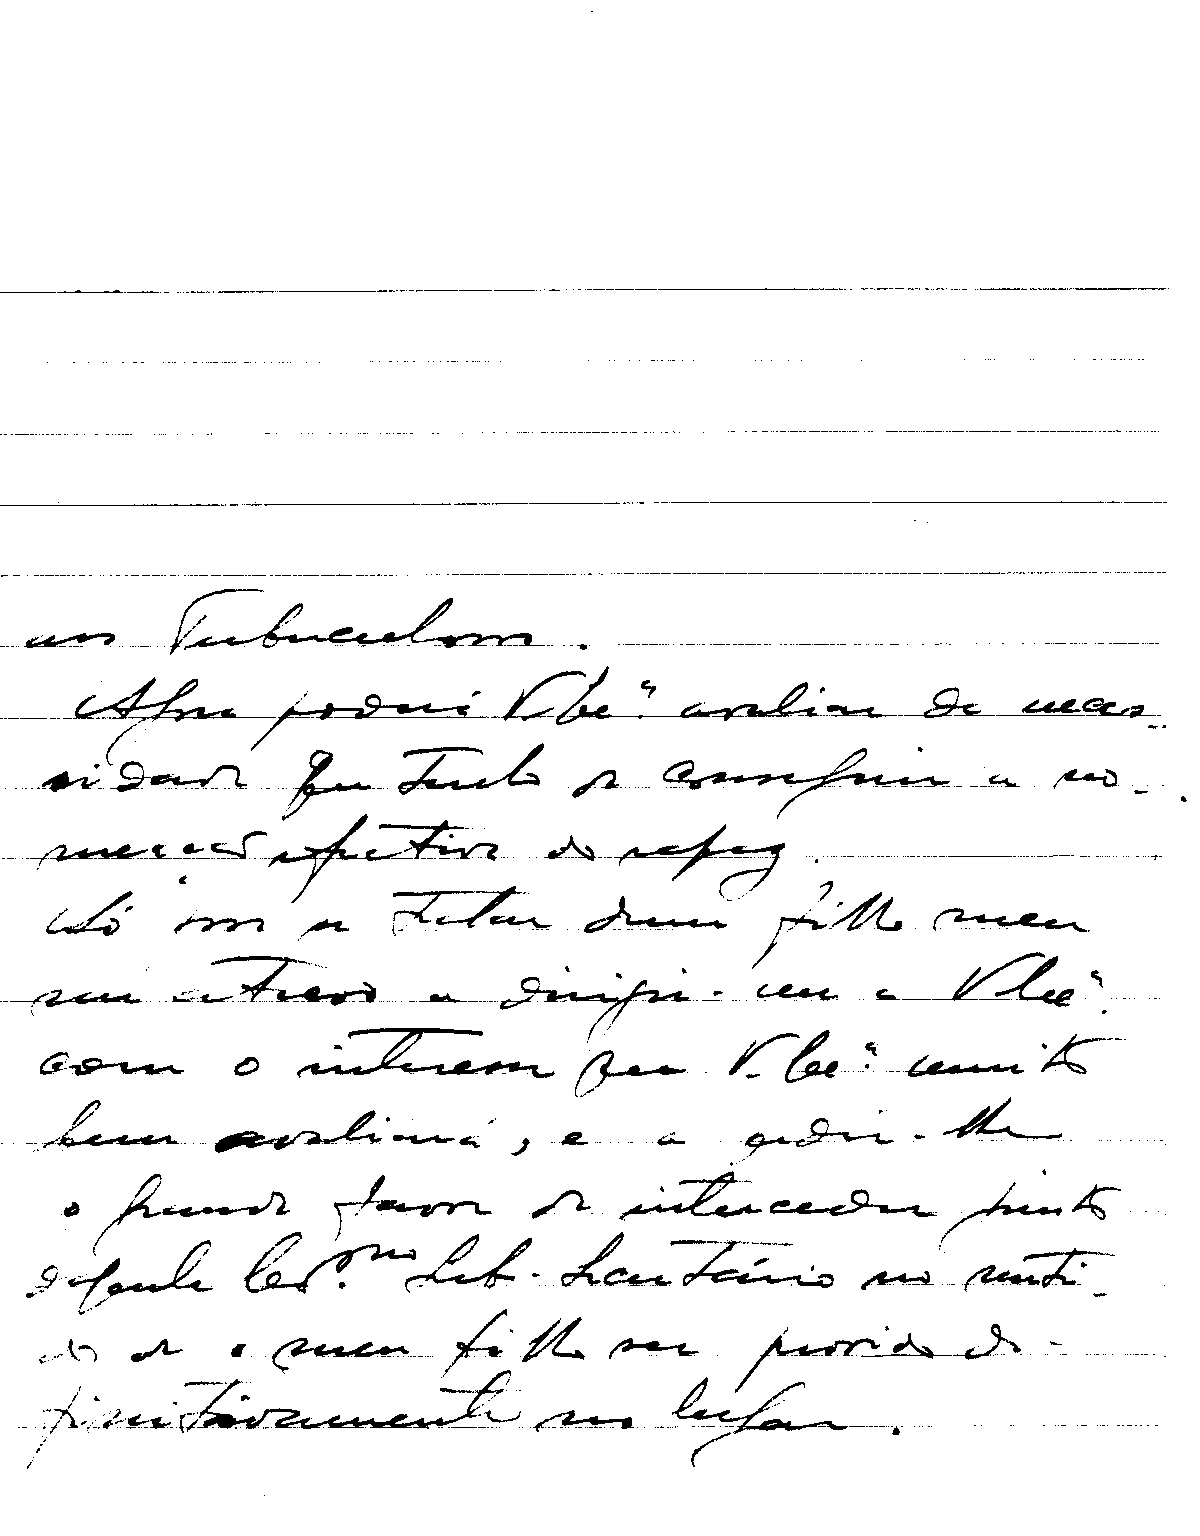 aos Tuberculosos.
Agora poderá V. Exª. avaliar da neces-
sidade que tenho de conseguir a no-
meação efectiva do rapaz.
Só por se tratar dum filho meu
me atrevo a dirigir-me a V. Exª.
com o interesse que V. Exª. muito
bem avaliará, e a pedir-lhe
o grande favor de interceder junto
daquele Exmo. Sub-Secretário no senti-
do de o meu filho ser provido de-
finitivamente no lugar.